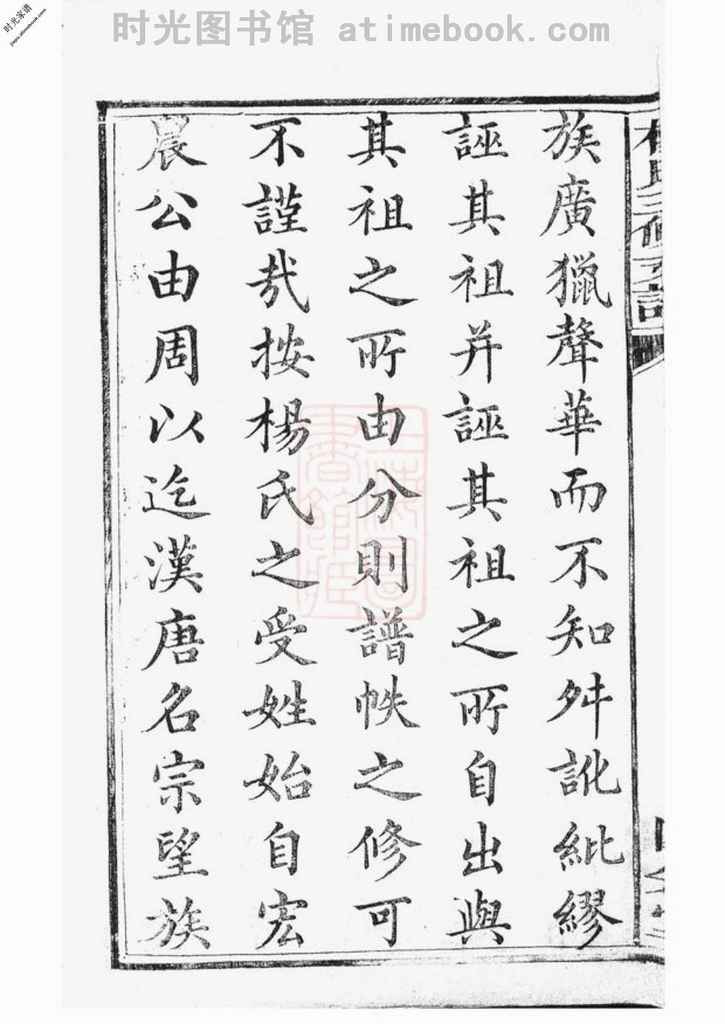 时光图书馆 atimebook.com
时光家谱
族廣獵聲華而不知舛訛紕繆
誣其祖并誣其祖之所自出與
其祖之所由分則譜帙之修可
不謹哉按楊氏之受姓始自宏
農公由周以迄漢唐名宗望族